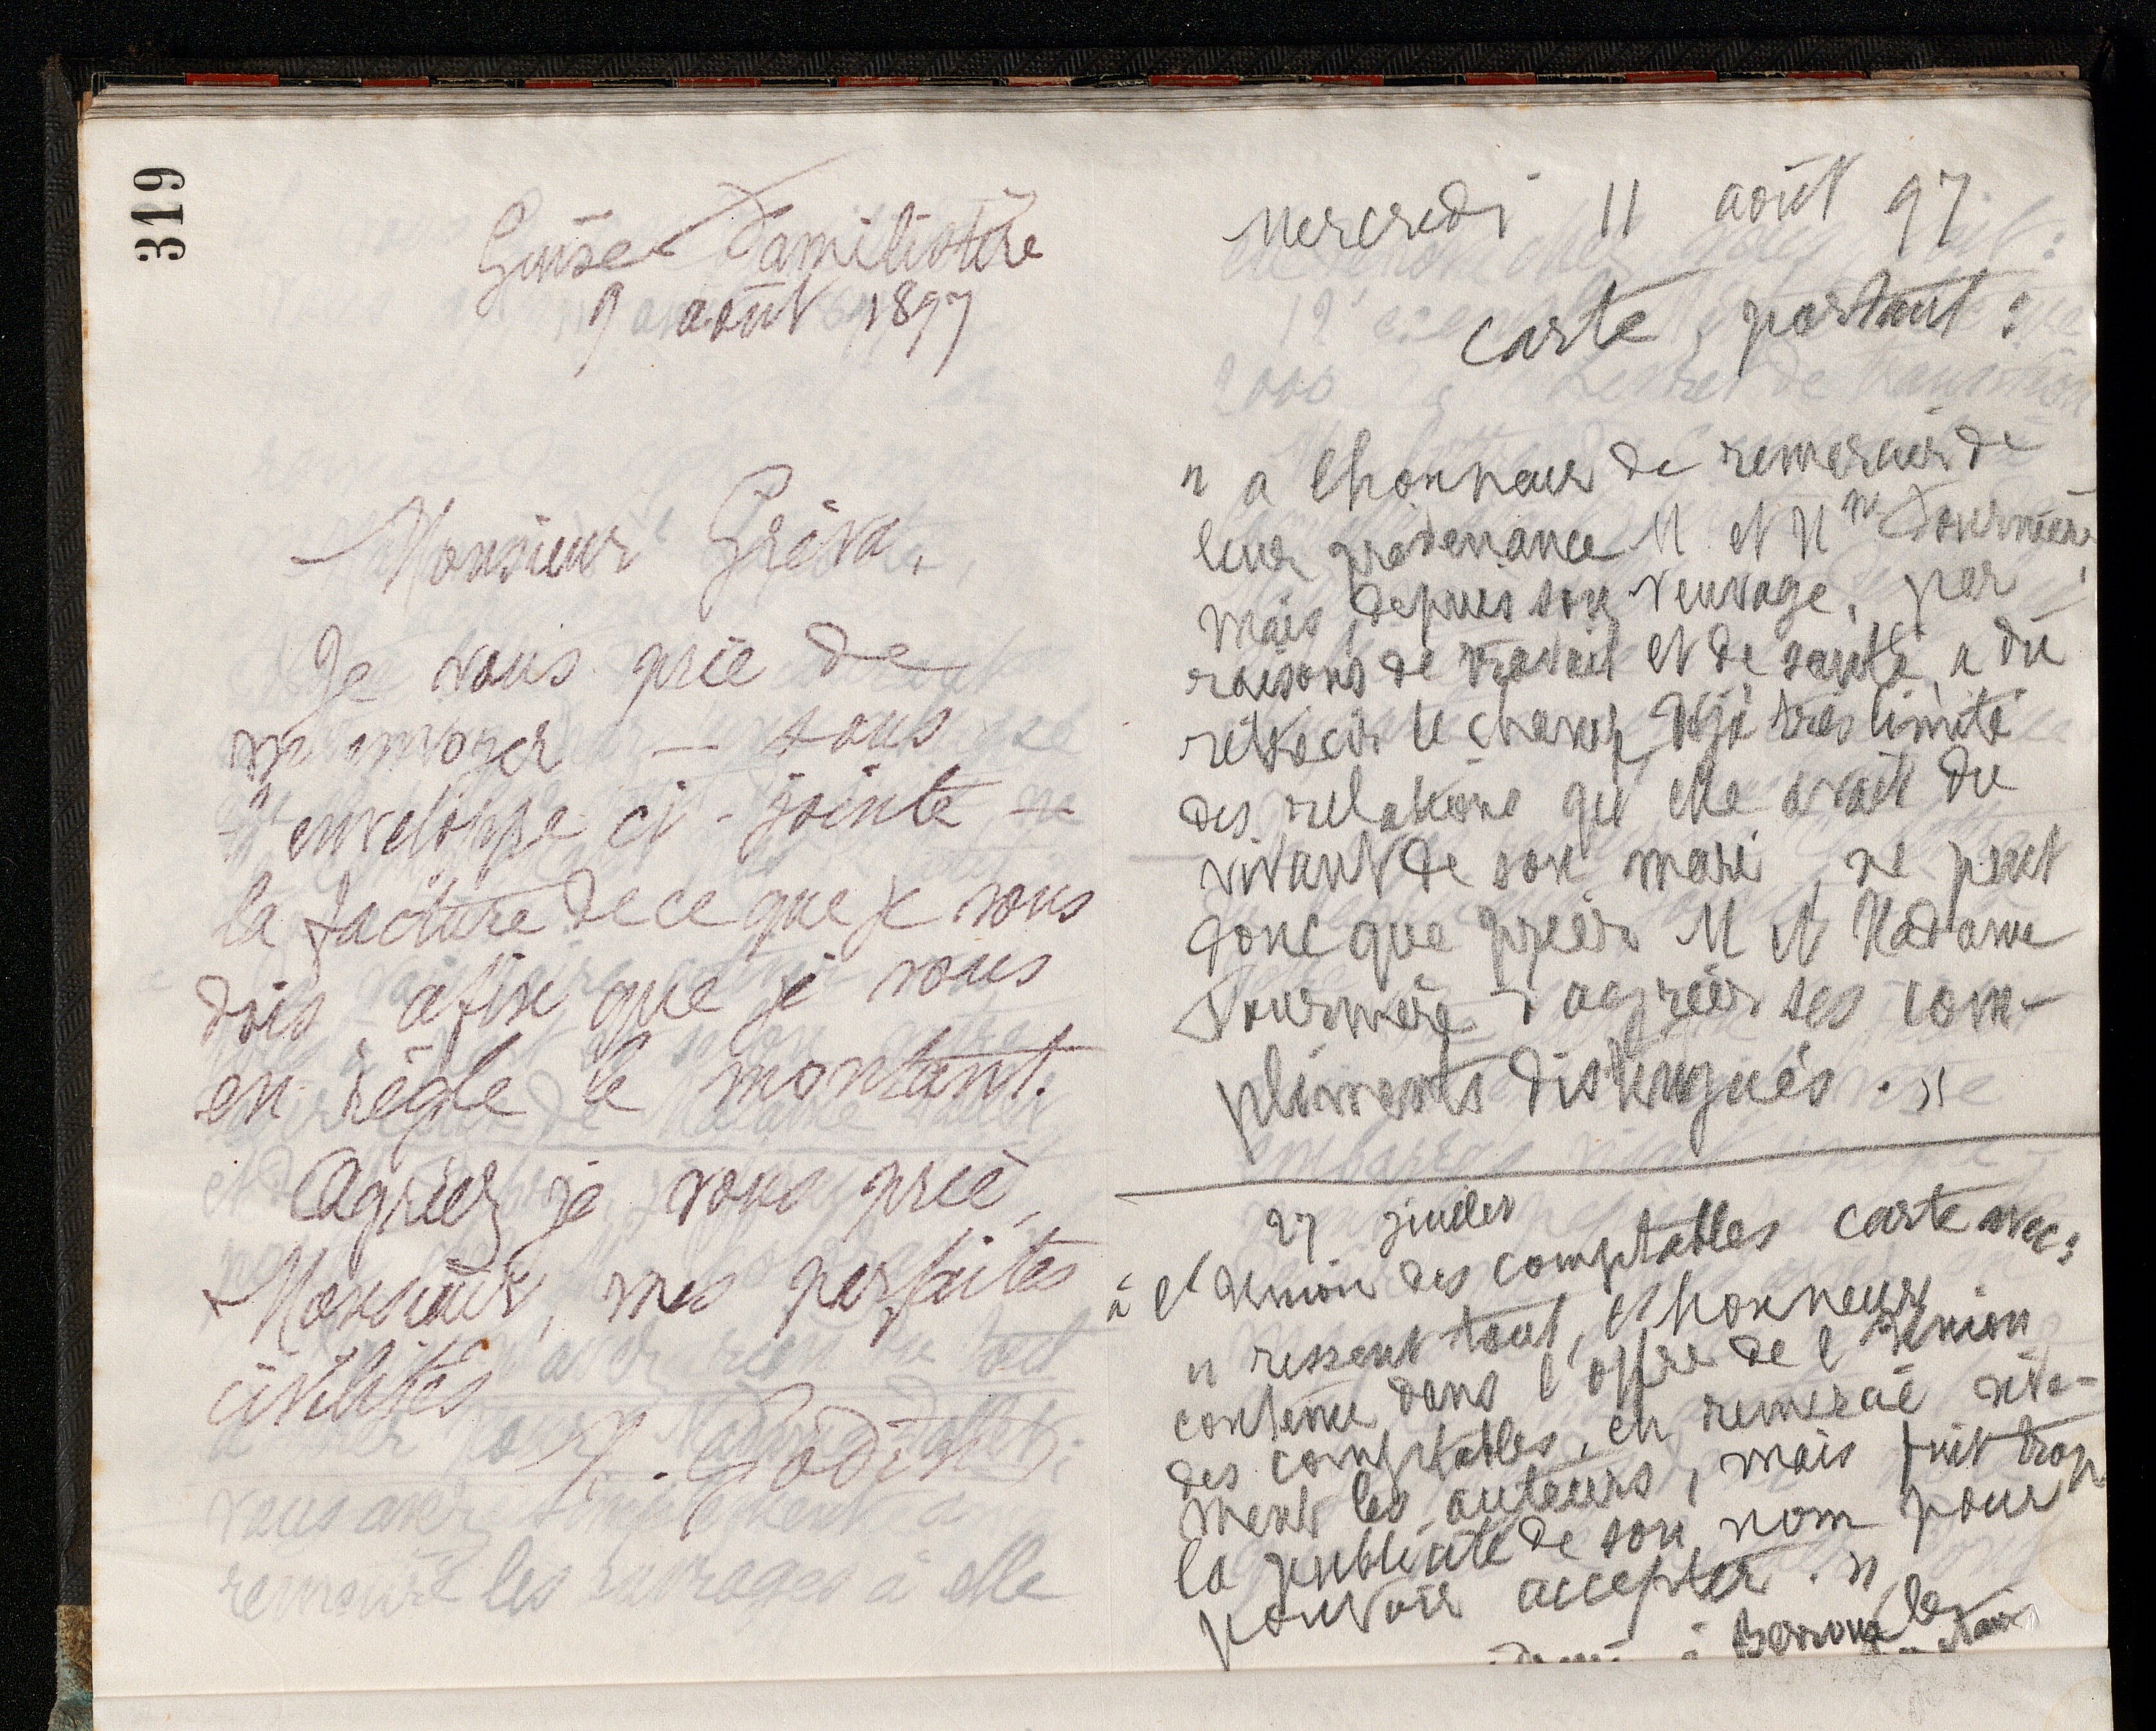 319
Guise Familistère
9 août 1897
Monsieur Grèva,
Je vous prie de
m'envoyer — sous
enveloppe ci-jointe —
la facture de ce que je vous
dois afin que je vous
en règle le montant.
Agréez je vous prie,
Monsieur, mes parfaites
civilités
M. Godin
Mercredi 11 août 97
Carte portant :
" a l'honneur de remercier de
leur prévenance M et Mme Fournière
mais, depuis son veuvage, par
raisons de travail et de santé, a dû
rétrécir le champ déjà très limité
des relations qu'elle avait du
vivant de son mari, ne peut
donc que prier M et Madame
Fournière d'agréer ses com-
pliments distingués. "
27 juillet
à l'Union des comptables carte avec :
" ressent tout l'honneur
contenu dans l'offre de l'Union
des comptables, en remercie vive-
ment les auteurs, mais fuit trop
la publicité de son nom pour
pouvoir accepter. "